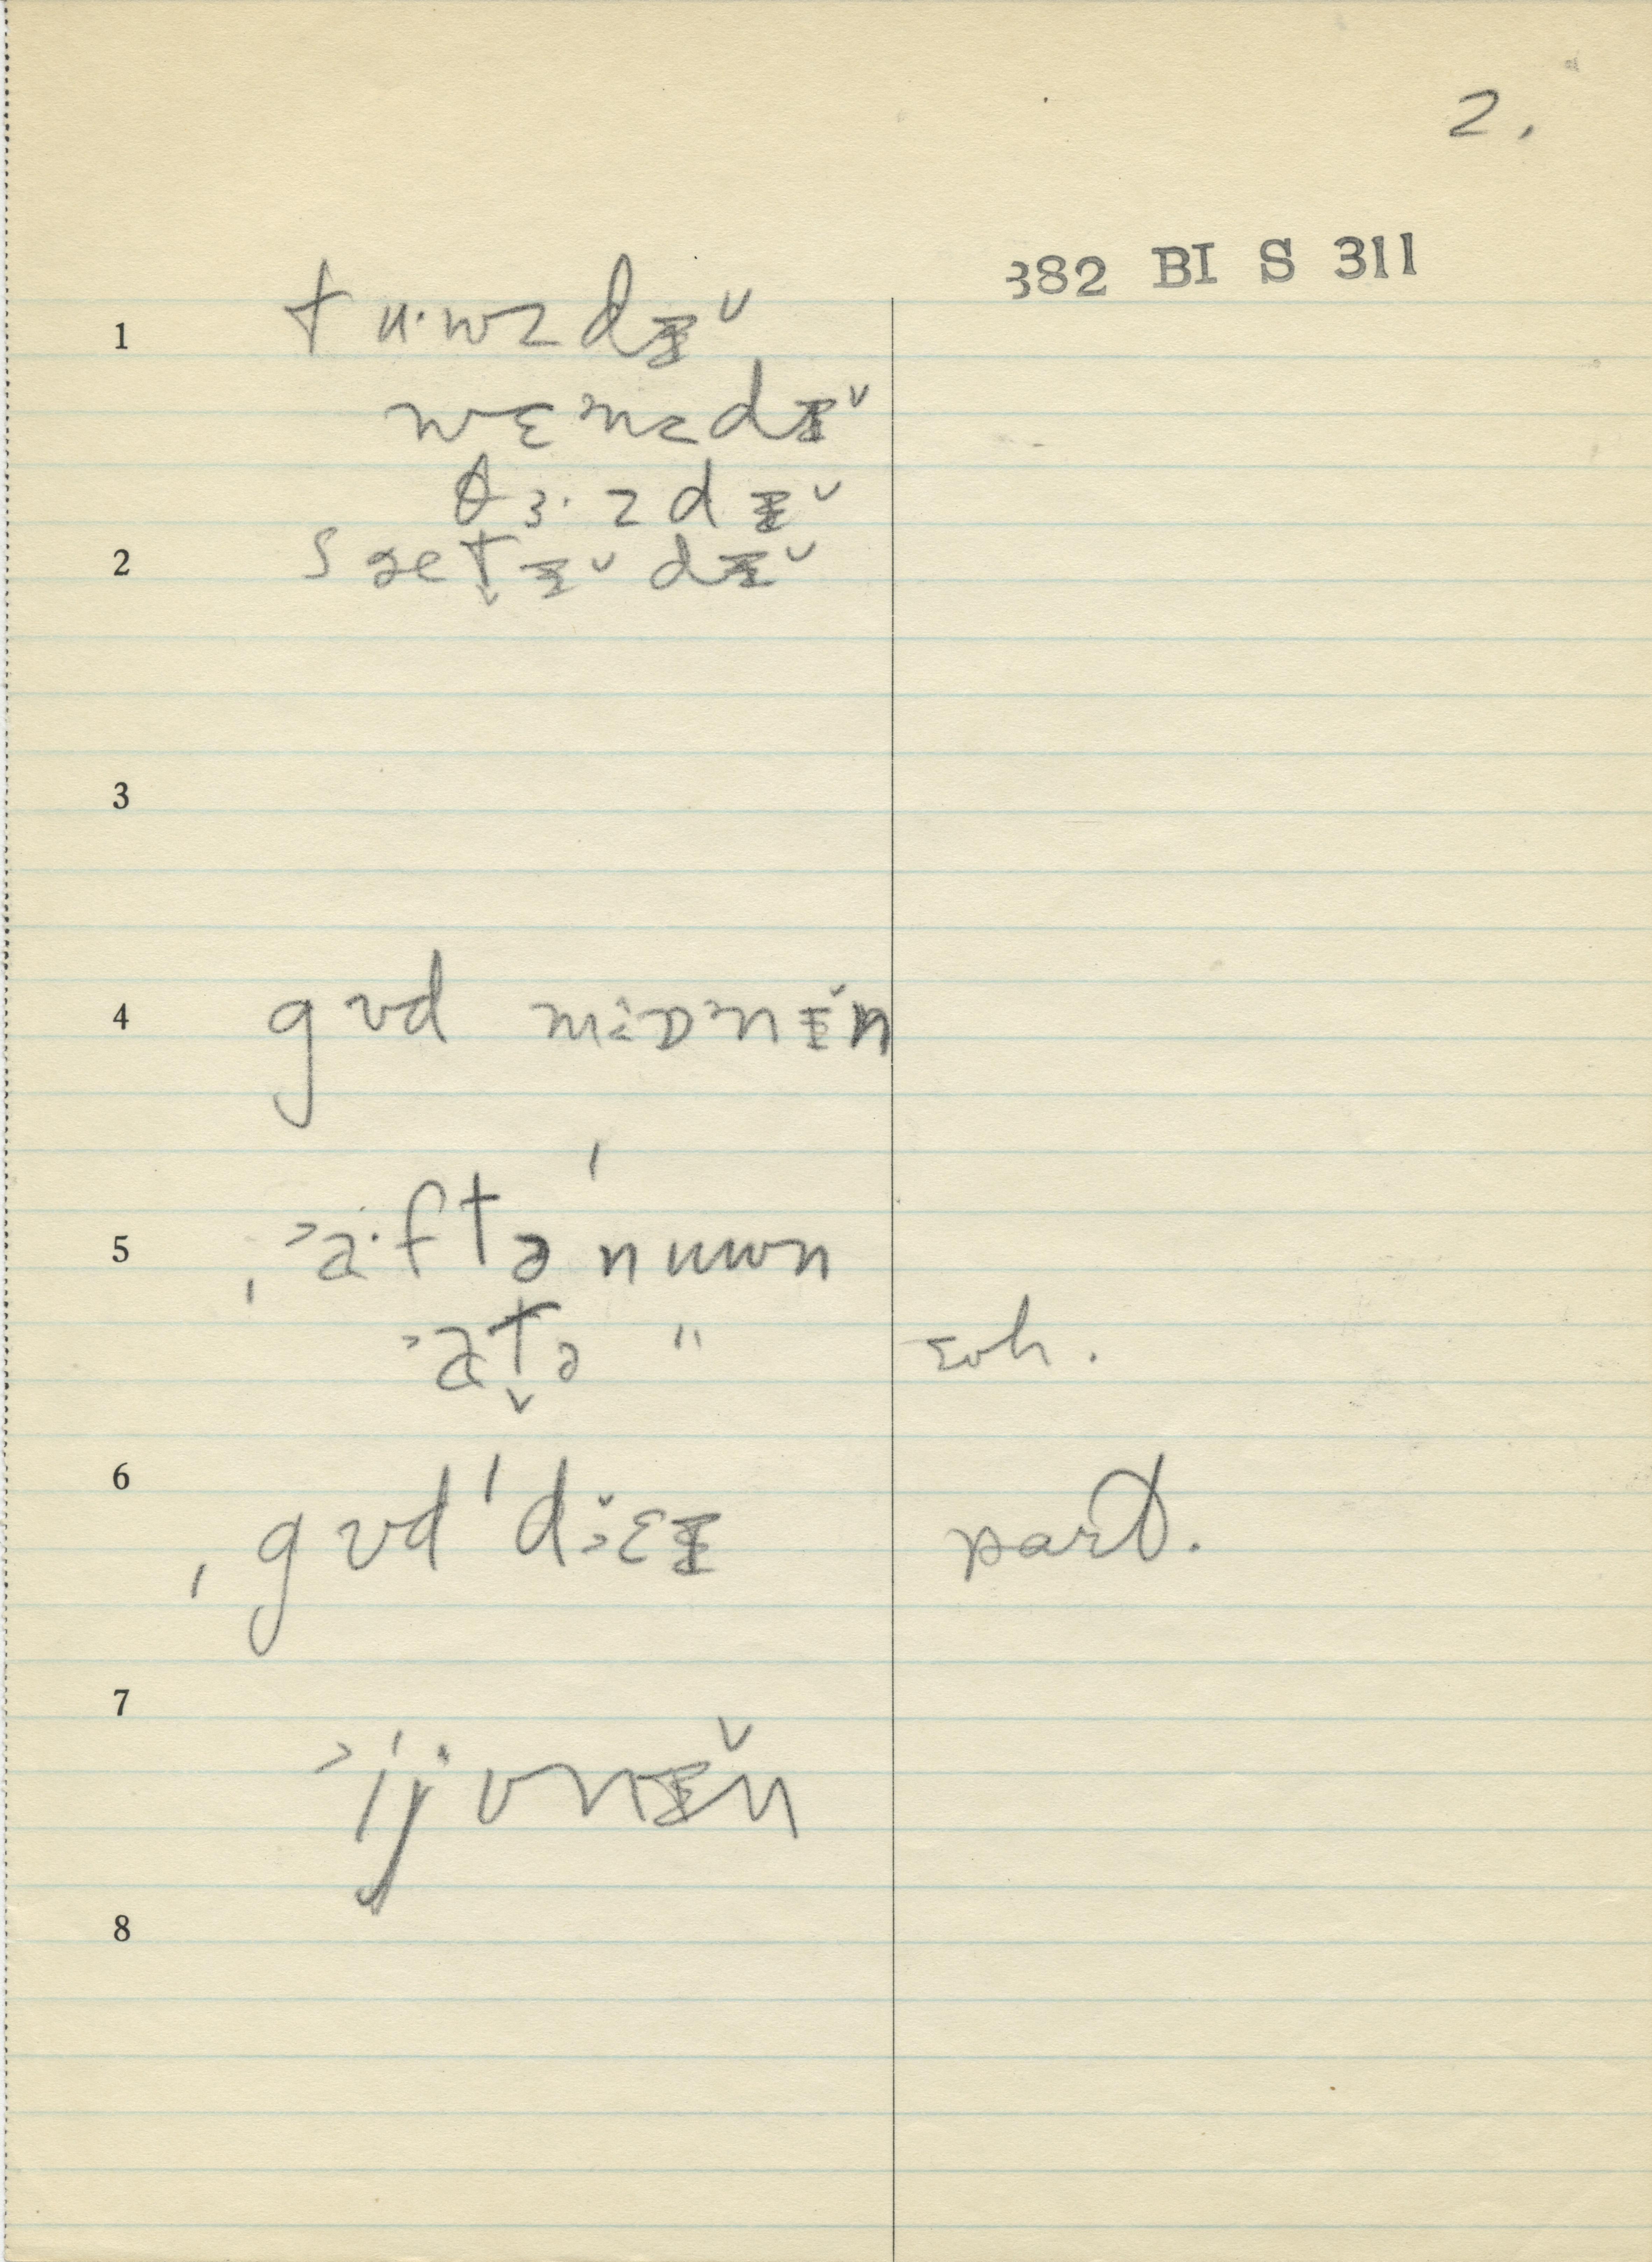 2.
382 BI S 311
1 tu·wzdɪ̆
wɛnzdɪ̆
θɜ·zdɪ̆
2 sæt̬ɪ̆dɪ̆
3
4 gʊd mɔɒnɪ̆n
5 ˌ˃a·ftə'nuwn
˃at̬ə " eoh.
6 ˌgʊd'dɛɪ part.
7 ˃'ijvnɪ̆n
8